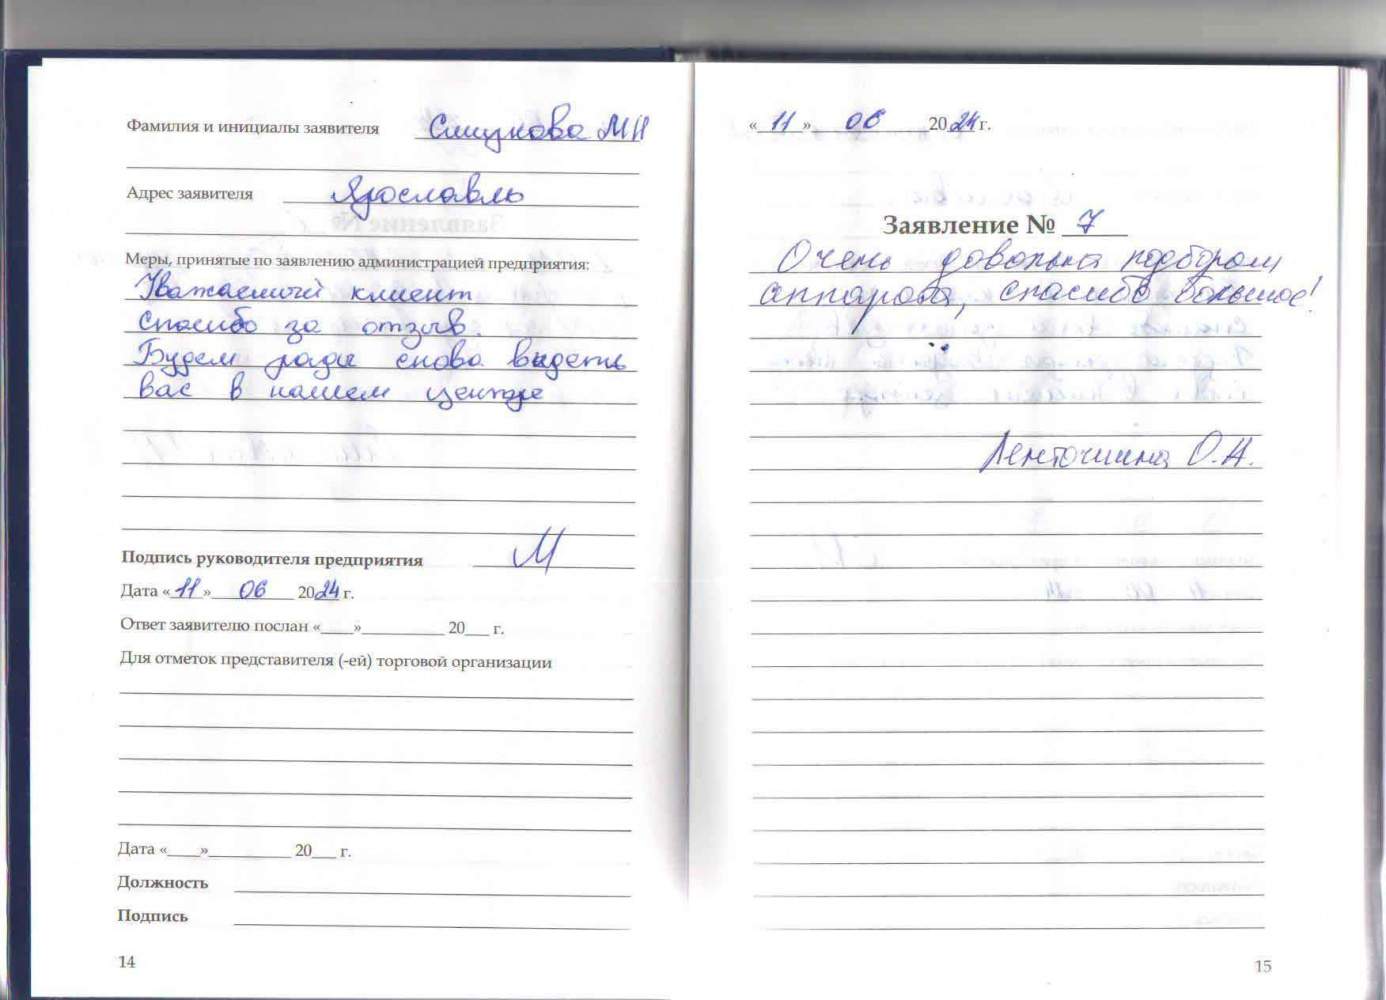 Фамилия и инициалы заявителя Смукова МН
Адрес заявителя Ярославль
Меры, принятые по заявлению администрацией предприятия:
Уважаемый клиент
спасибо за отзыв.
Будем рады снова видеть
вас в нашем центре
Подпись руководителя предприятия
Дата «11» 06 2024 г.
Ответ заявителю послан «___»__________ 20___ г.
Для отметок представителя (-ей) торговой организации
Дата «____»__________ 20___ г.
Должность
Подпись
14
«11» 06 2024 г.
Заявление № 7
Очень довольна подбором
аппарата, спасибо большое!
Ленточкина О.А.
15